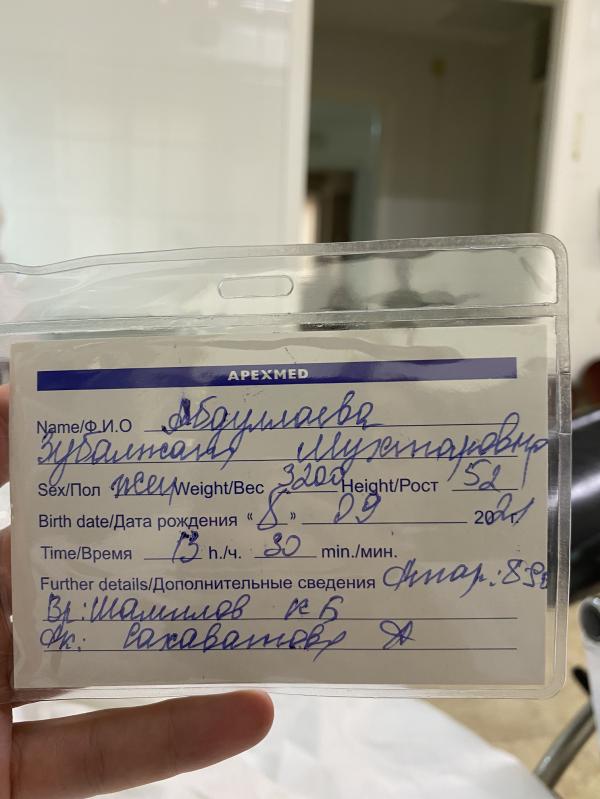 APEXMED
Name/Ф.И.О Абдуллаева
Зубалжат Мухтаровна
Sex/Пол жен Weight/Вес 3200 Height/Рост 52
Birth date/Дата рождения « 8 » 09 2021 г.
Time/Время 13 h./ч. 30 min./мин.
Further details/Дополнительные сведения Апгар: 8-9б
Вр: Шамилов КБ
Ак: Сахаватова А